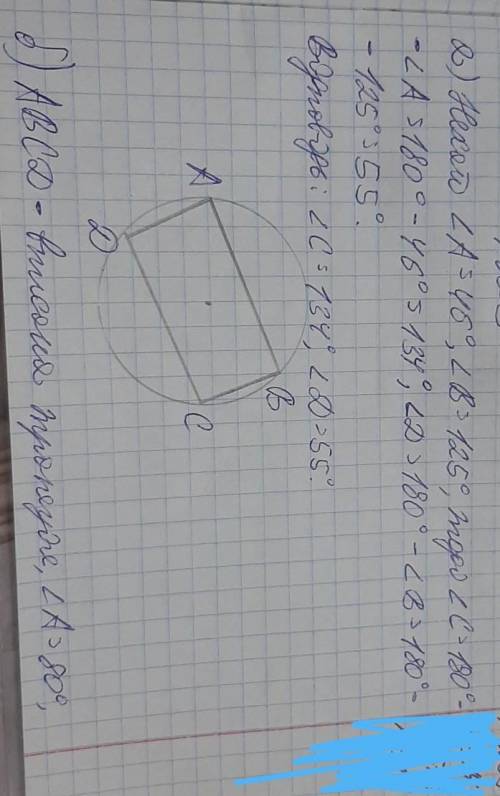 а) Нехай ∠A = 46°, ∠B = 125°, тоді ∠C = 180° -
- ∠A = 180° - 46° = 134°, ∠D = 180° - ∠B = 180° -
- 125° = 55°.
Відповідь: ∠C = 134°, ∠D = 55°.
A
B
D
C
б) ABCD - вписана трапеція, ∠A = 80°,